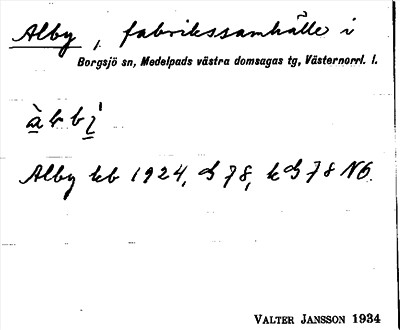 Alby, fabrikssamhälle i
Borgsjö sn, Medelpads västra domsagas tg, Västernorrl. l.
Alby kb 1924, G 78, kG 78 NO.
VALTER JANSSON 1934